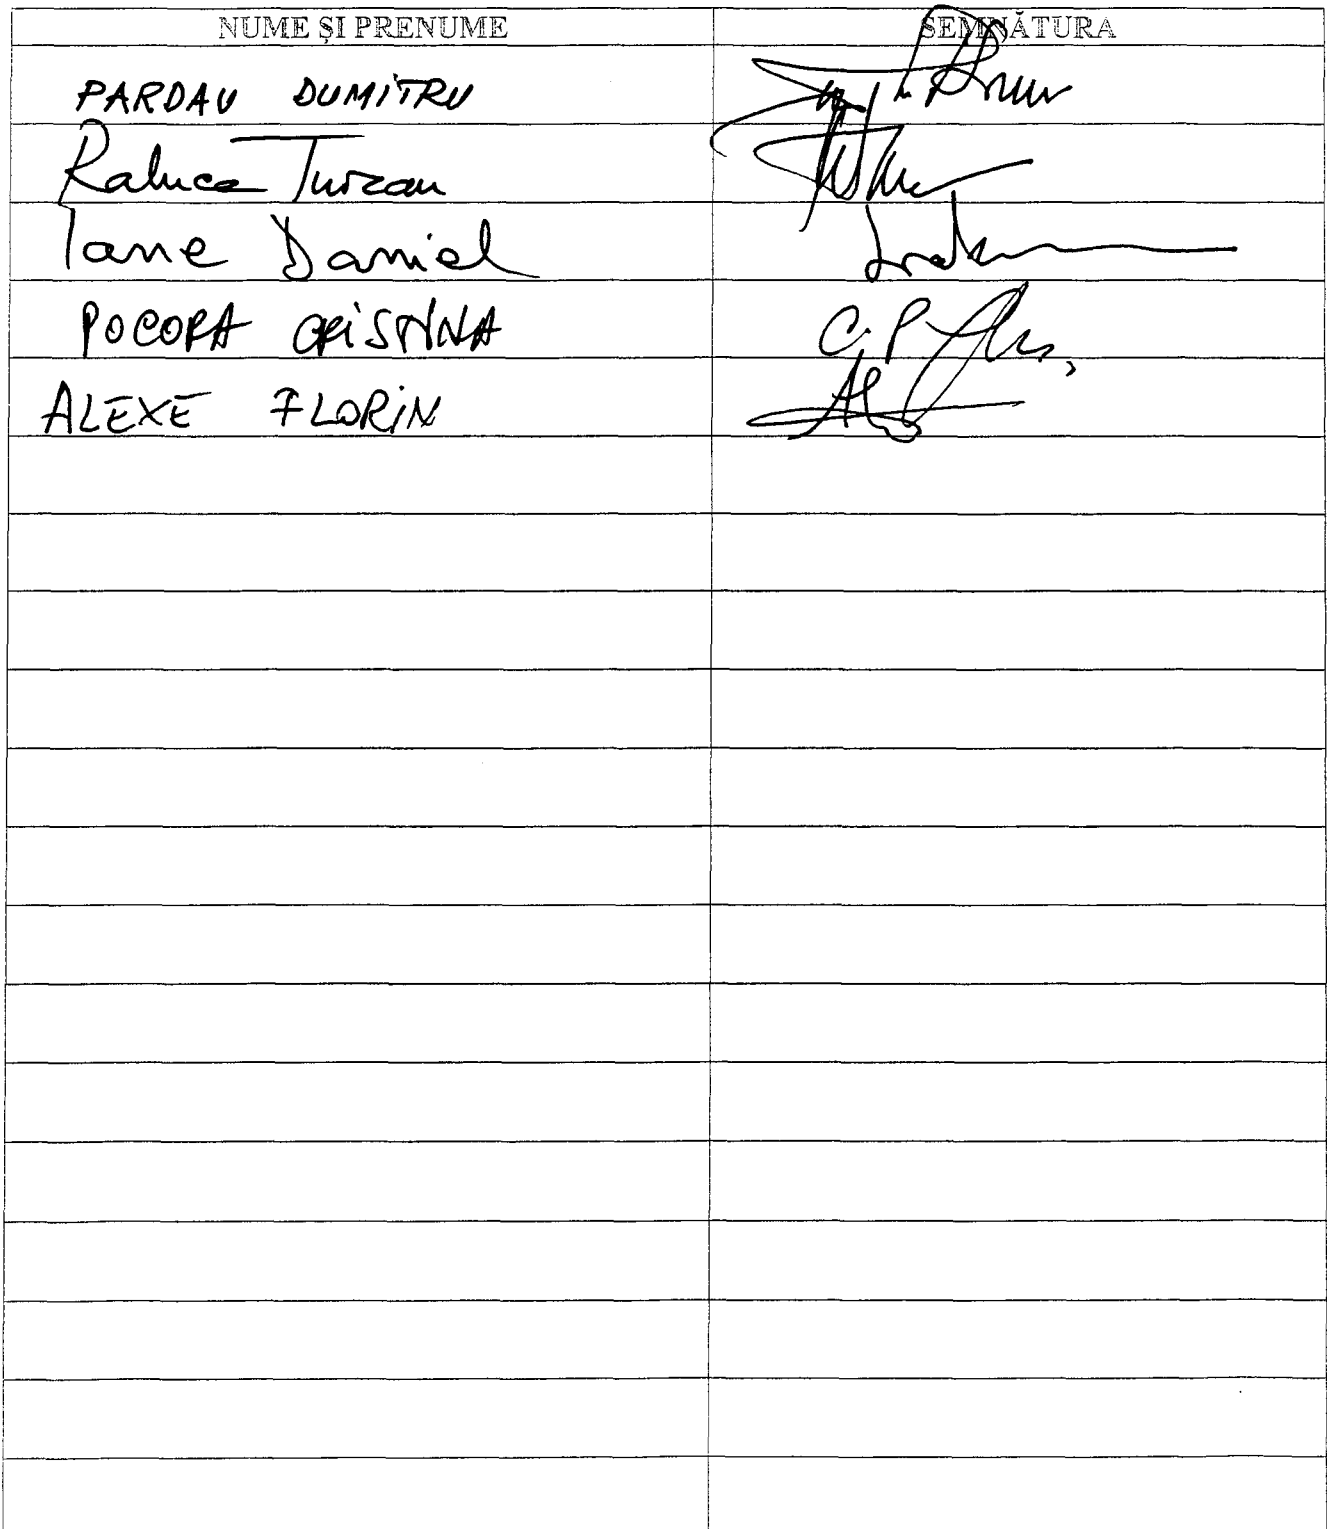 NUME ȘI PRENUME SEMNĂTURA
PARDAU DUMITRU
Raluca Turcan
Iane Daniel
POCORA CRISTINA C.P.
ALEXE FLORIN